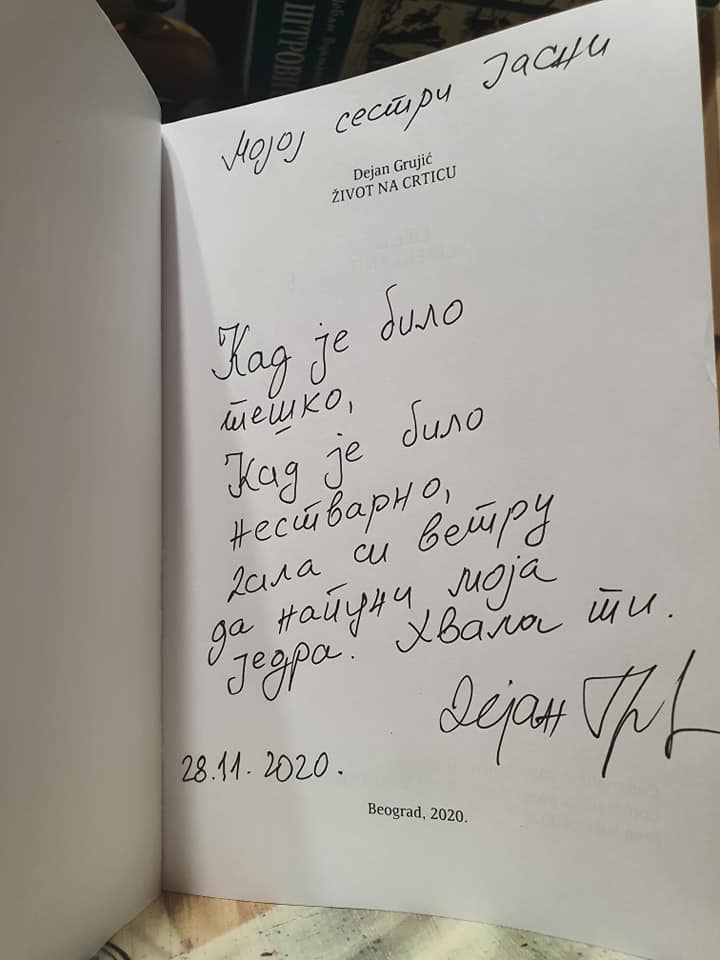 Мојој сестри Јасни
Dejan Grujić
ŽIVOT NA CRTICU
Кад је било
тешко,
Кад је било
нестварно,
дала си ветру
да напуни моја
једра. Хвала ти.
Дејан
28.11.2020.
Beograd, 2020.